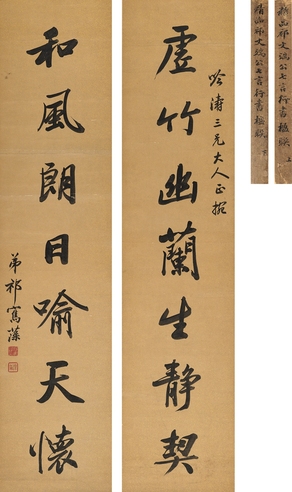 虛竹幽蘭生靜契
吟濤三兄大人正
和風朗日喻天懷
弟祁寯藻
祁文端公七言行書楹聯 上
祁文端公七言行書楹聯 下